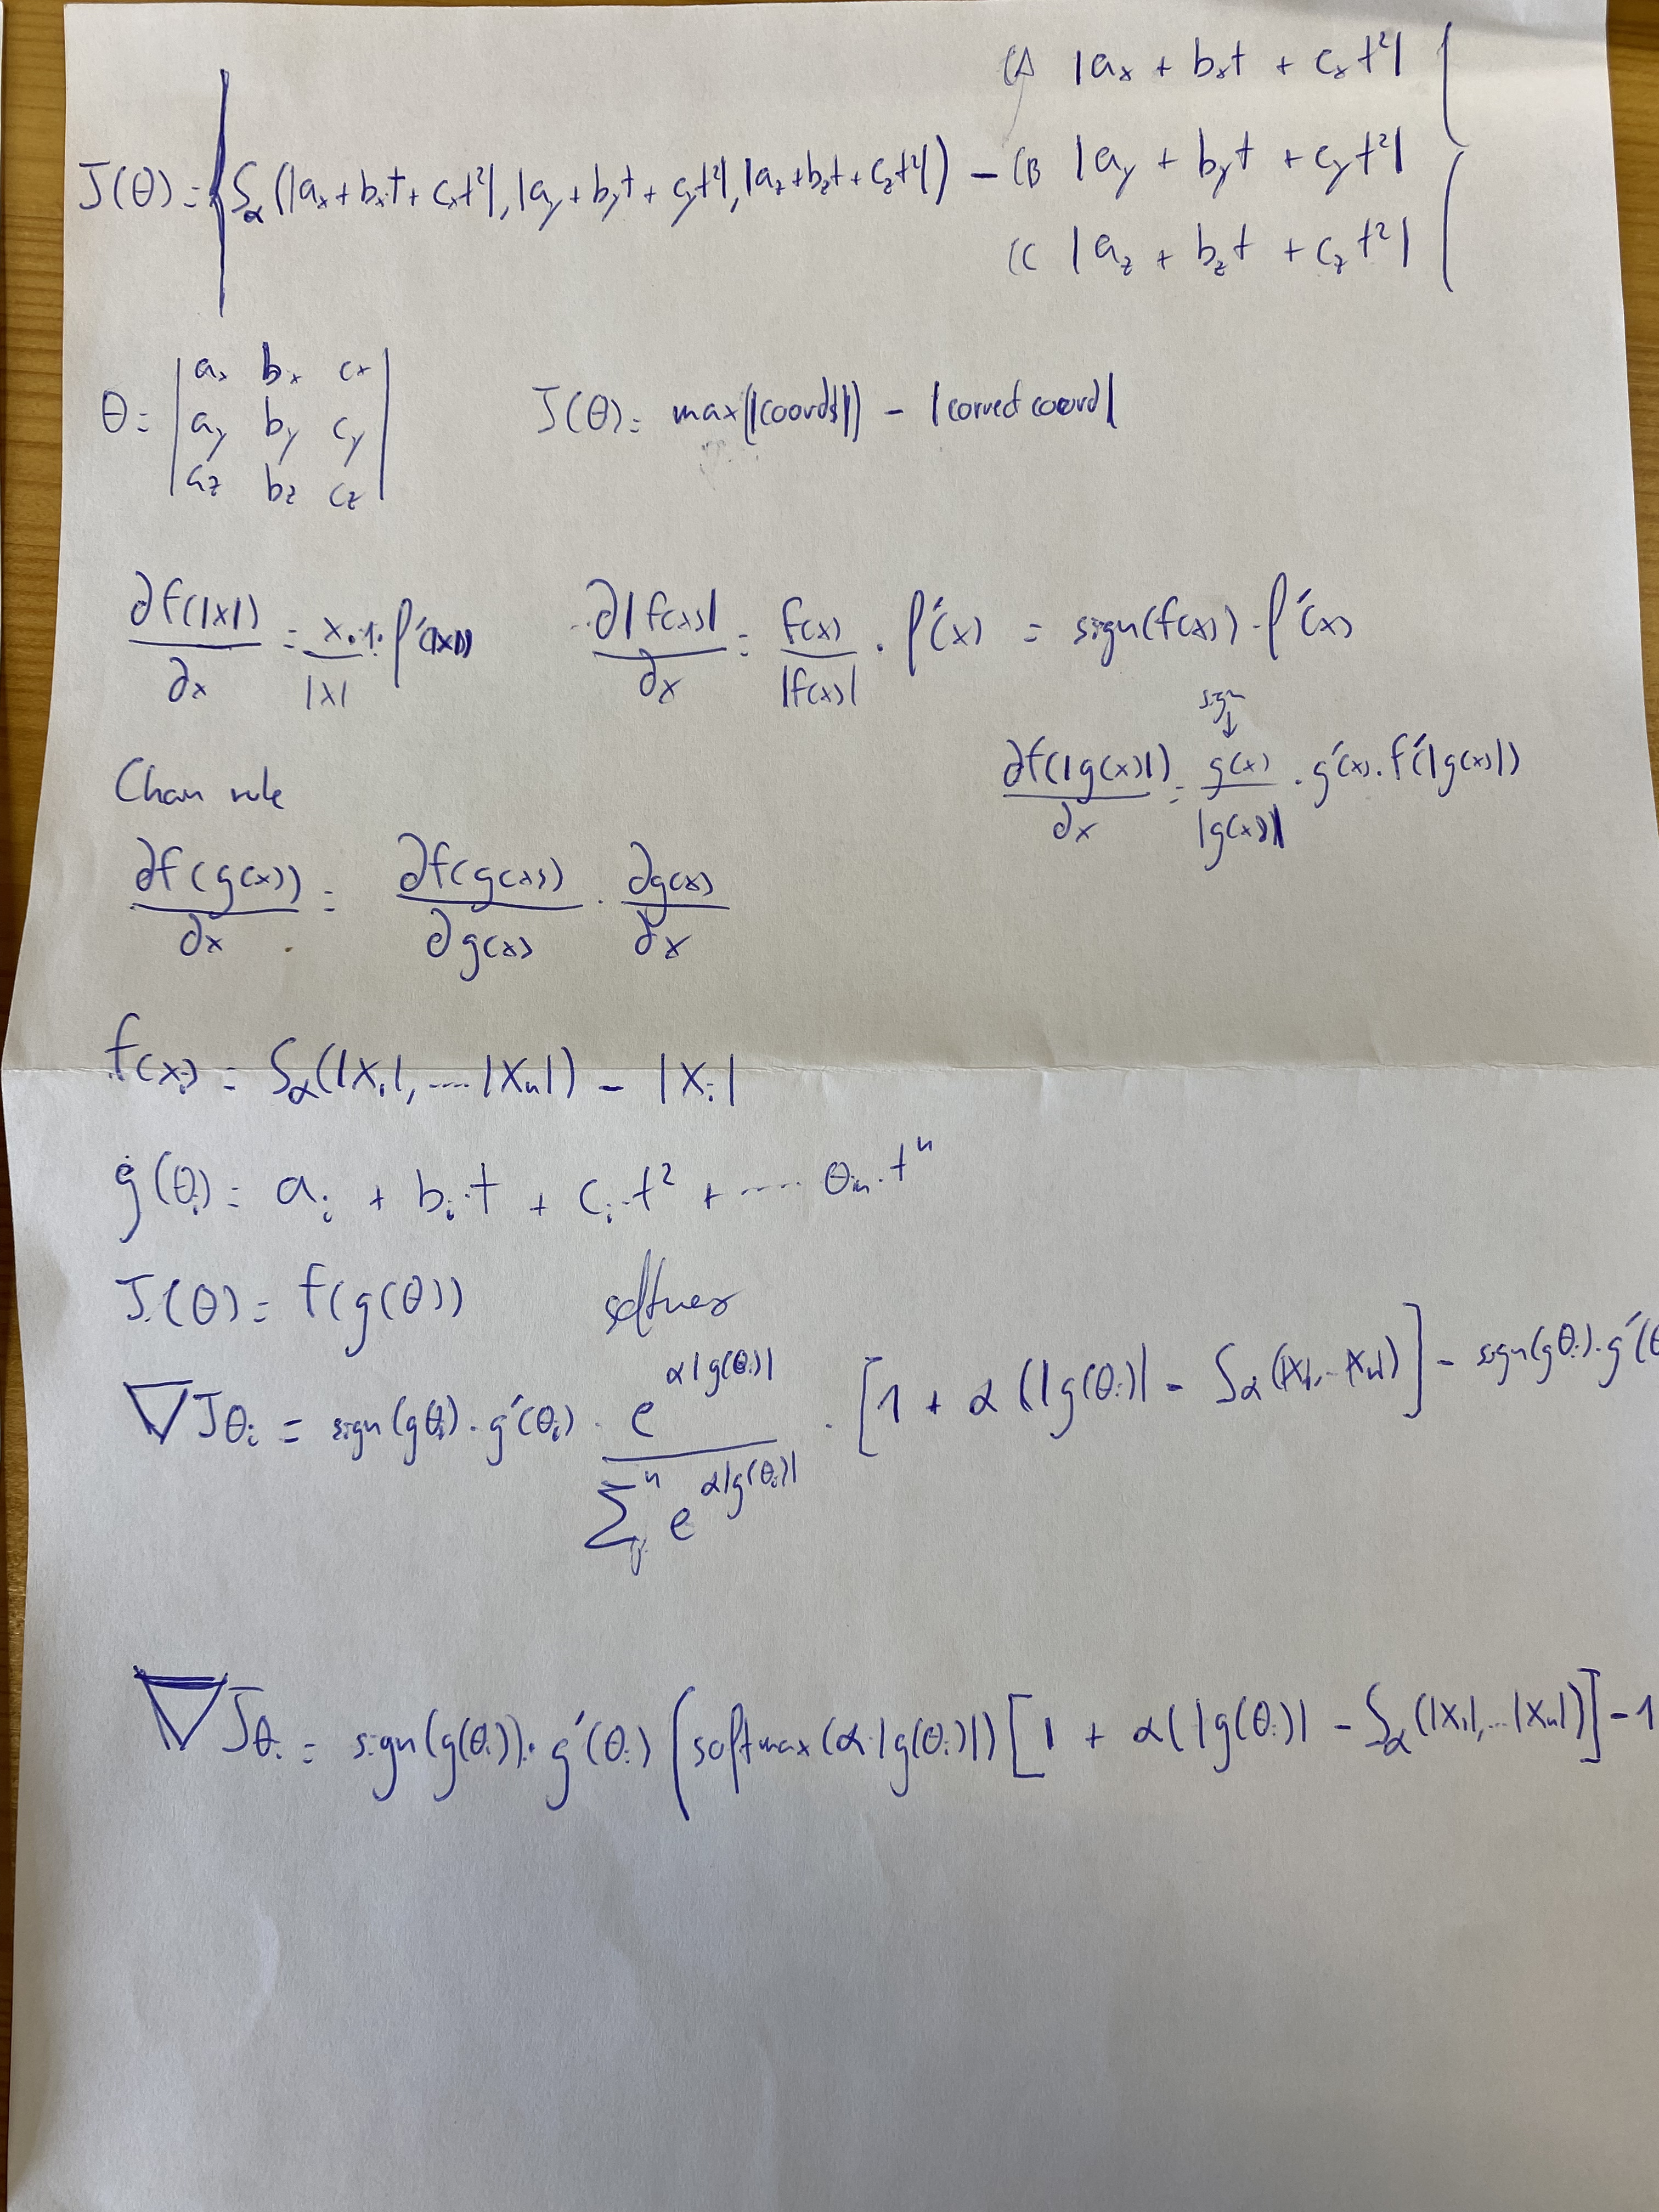 (A |aₓ + bₓt + cₓt²|
J(θ) = { Sα(|aₓ + bₓt + cₓt²|, |a_y + b_yt + c_yt²|, |a_z + b_zt + c_zt²|) - (B |a_y + b_yt + c_yt²|
(C |a_z + b_zt + c_zt²|
θ = | aₓ bₓ cₓ | J(θ) = max(|coords|) - |correct coord|
| a_y b_y c_y |
| a_z b_z c_z |
∂f(|x|)/∂x = x·1/|x| · f'(|x|) ∂|f(x)|/∂x = f(x)/|f(x)| · f'(x) = sign(f(x)) · f'(x)
sign
↓
∂f(|g(x)|)/∂x = g(x)/|g(x)| · g'(x) · f'(|g(x)|)
Chain rule
∂f(g(x))/∂x = ∂f(g(x))/∂g(x) · ∂g(x)/∂x
f(xᵢ) = Sα(|xᵢ|, .... |xₙ|) - |xᵢ|
g(θᵢ) = aᵢ + bᵢ·t + cᵢ·t² + .... θᵢₙ·tⁿ
J(θ) = f(g(θ)) softmax
∇Jθᵢ = sign(gθᵢ) · g'(θᵢ) · e^(α|g(θᵢ)|) / Σⁿ e^(α|g(θᵢ)|) · [1 + α(|g(θᵢ)| - Sα(|x₁,..xₙ|)] - sign(gθᵢ) · g'(θ
∇Jθᵢ = sign(g(θᵢ)) · g'(θᵢ) (softmax(α·|g(θᵢ)|) [1 + α(|g(θᵢ)| - Sα(|xᵢ|,...|xₙ|)] - 1